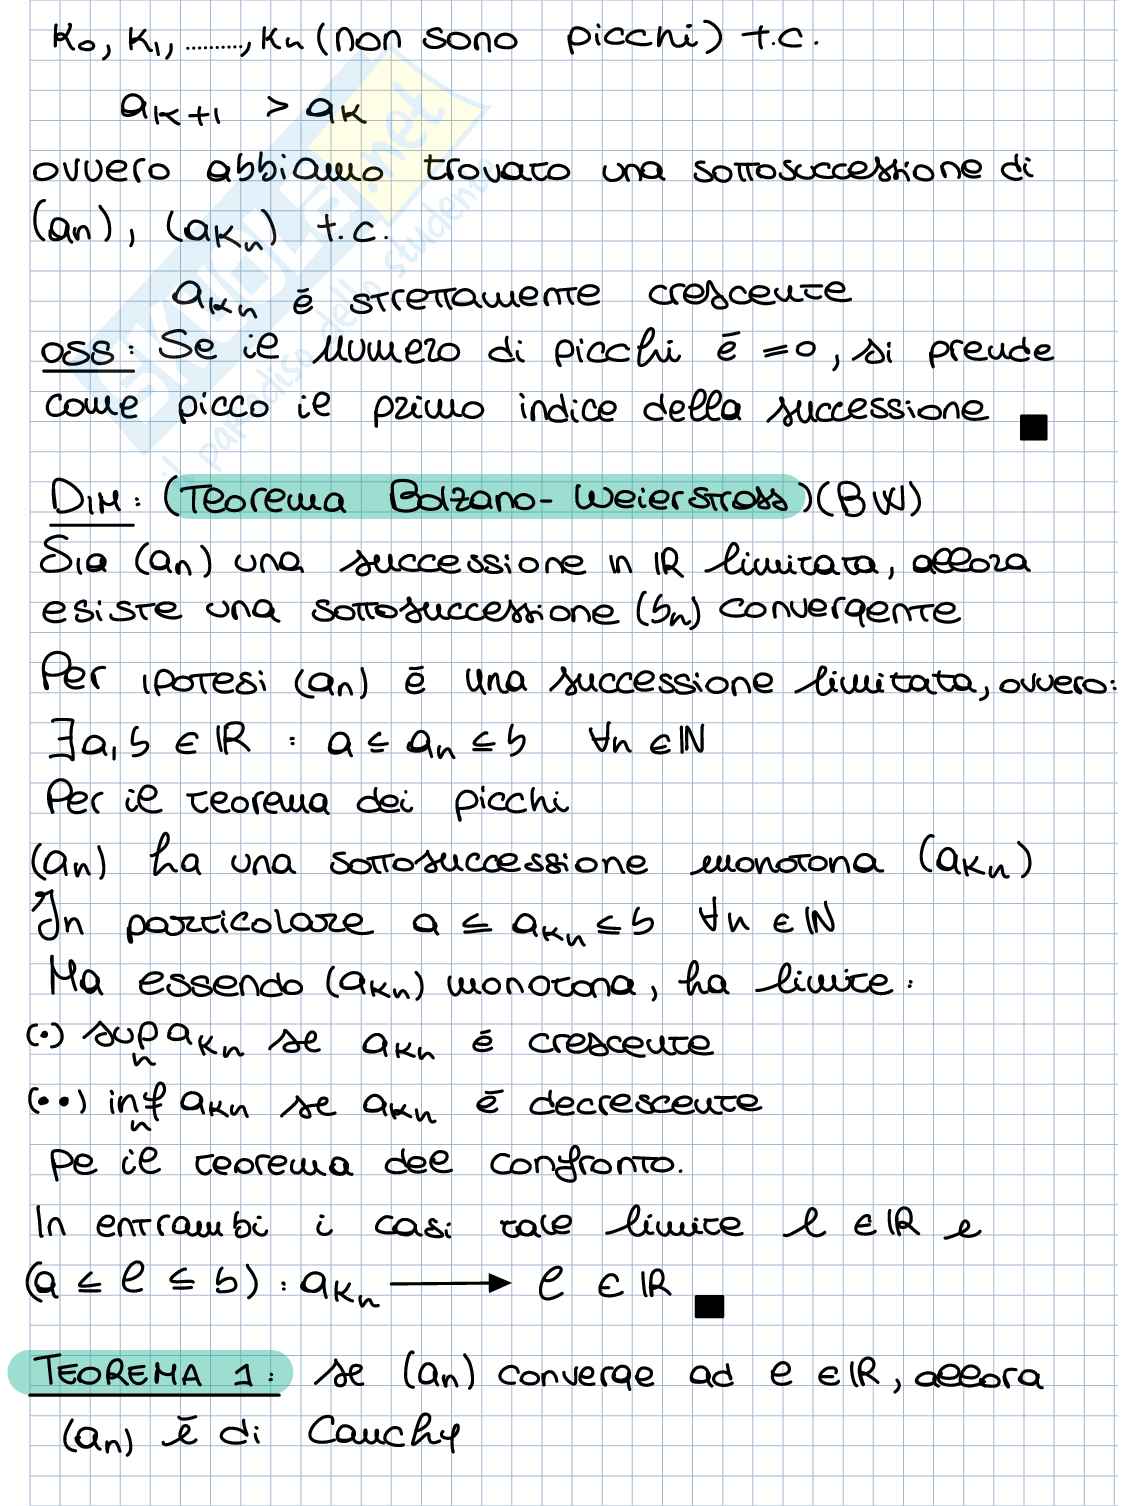 K₀, K₁, .........., Kₙ (non sono picchi) t.c.
a_{K+1} > a_K
ovvero abbiamo trovato una sottosuccessione di
(aₙ), (a_{Kₙ}) t.c.
a_{Kₙ} è strettamente crescente
OSS: Se il numero di picchi è =0, si prende
come picco il primo indice della successione ■
DIM: (Teorema Bolzano-Weierstrass)(BW)
Sia (aₙ) una successione in ℝ limitata, allora
esiste una sottosuccessione (bₙ) convergente
Per ipotesi (aₙ) è una successione limitata, ovvero:
∃a, b ∈ ℝ : a ≤ aₙ ≤ b ∀n ∈ ℕ
Per il teorema dei picchi
(aₙ) ha una sottosuccessione monotona (a_{Kₙ})
In particolare a ≤ a_{Kₙ} ≤ b ∀n ∈ ℕ
Ma essendo (a_{Kₙ}) monotona, ha limite:
(•) supₙ a_{Kₙ} se a_{Kₙ} è crescente
(••) infₙ a_{Kₙ} se a_{Kₙ} è decrescente
pe il teorema del confronto.
In entrambi i casi tale limite l ∈ ℝ e
(a ≤ l ≤ b) : a_{Kₙ} ⟶ l ∈ ℝ ■
TEOREMA 1: se (aₙ) converge ad l ∈ ℝ, allora
(aₙ) è di Cauchy
SKUOLA.net
il paradiso dello studente